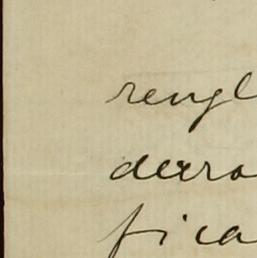 rengl
derro
fica